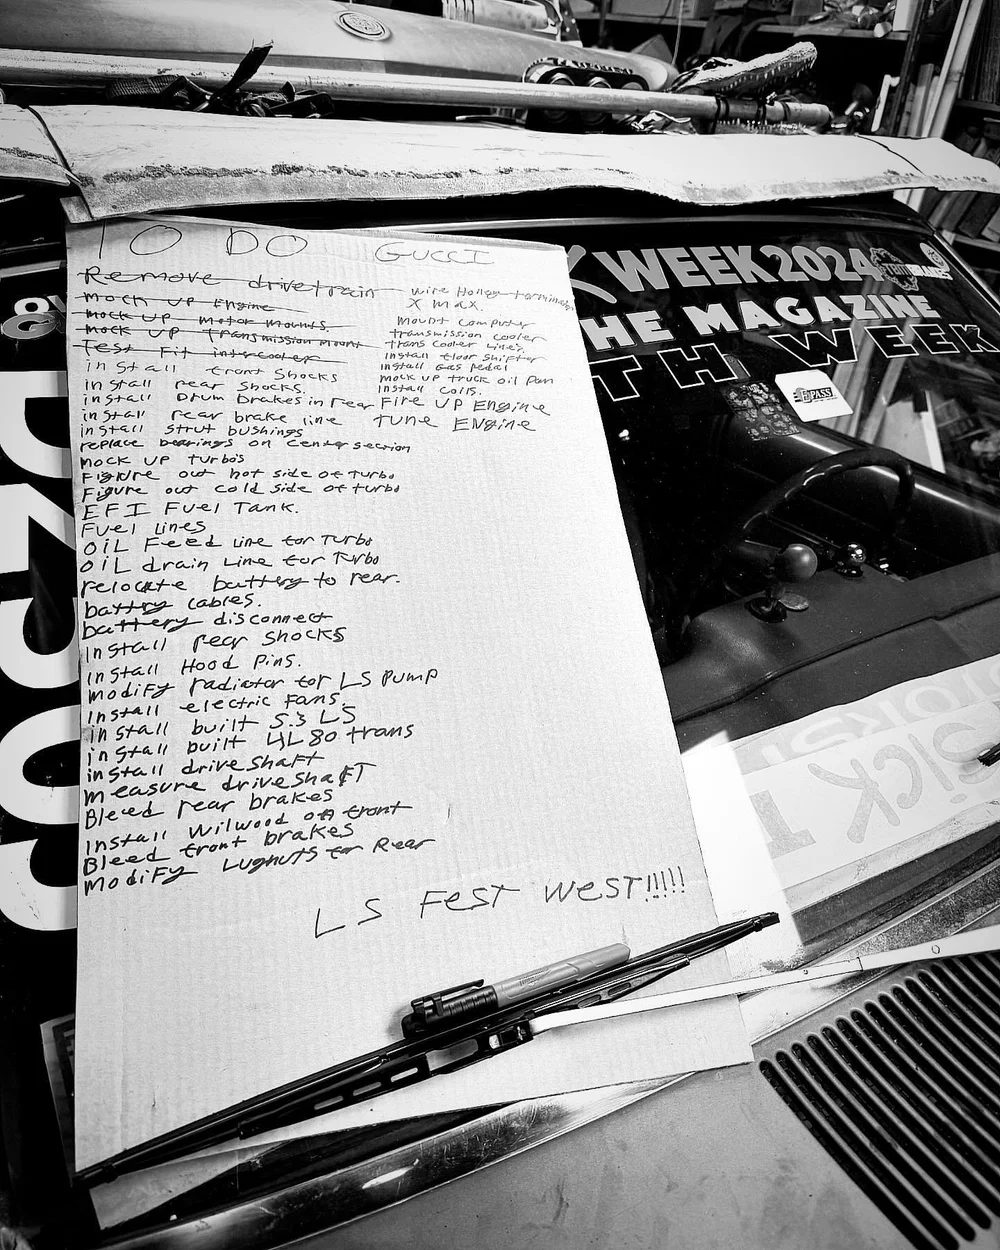 TO DO GUCCI
Remove drivetrain
Mock UP Engine
Mock UP Motor Mounts.
Mock UP Transmission Mount
Test Fit intercooler
install front Shocks
install rear Shocks.
install Drum Brakes in rear
install rear brake line
install Strut bushings
replace bearings on Center section
Mock UP turbo's
Figure out hot side of turbo
Figure out cold side of turbo
EFI Fuel Tank.
Fuel lines
OiL Feed Line for Turbo
OiL drain Line for Turbo
relocate battery to rear.
battry cables.
battery disconnect
Install rear shocks
Install Hood Pins.
Modify radiator for LS PUMP
Install electric Fans.
install built 5.3 LS
install built 4L80 trans
install driveshaft
Measure driveshaFT
Bleed rear brakes
Install Wilwood on front
Bleed front brakes
Modify Lugnuts for Rear
wire Holley terminator
X max.
Mount Computer
transmission cooler
trans Cooler Lines.
install floor Shifter
install Gas pedal
Mock up truck oil pan
install Coils.
FIre UP Engine
TUNE ENgine
LS FEST WEST!!!!!
WEEK2024
HE MAGAZINE
TH WEEK
E PASS
SICK